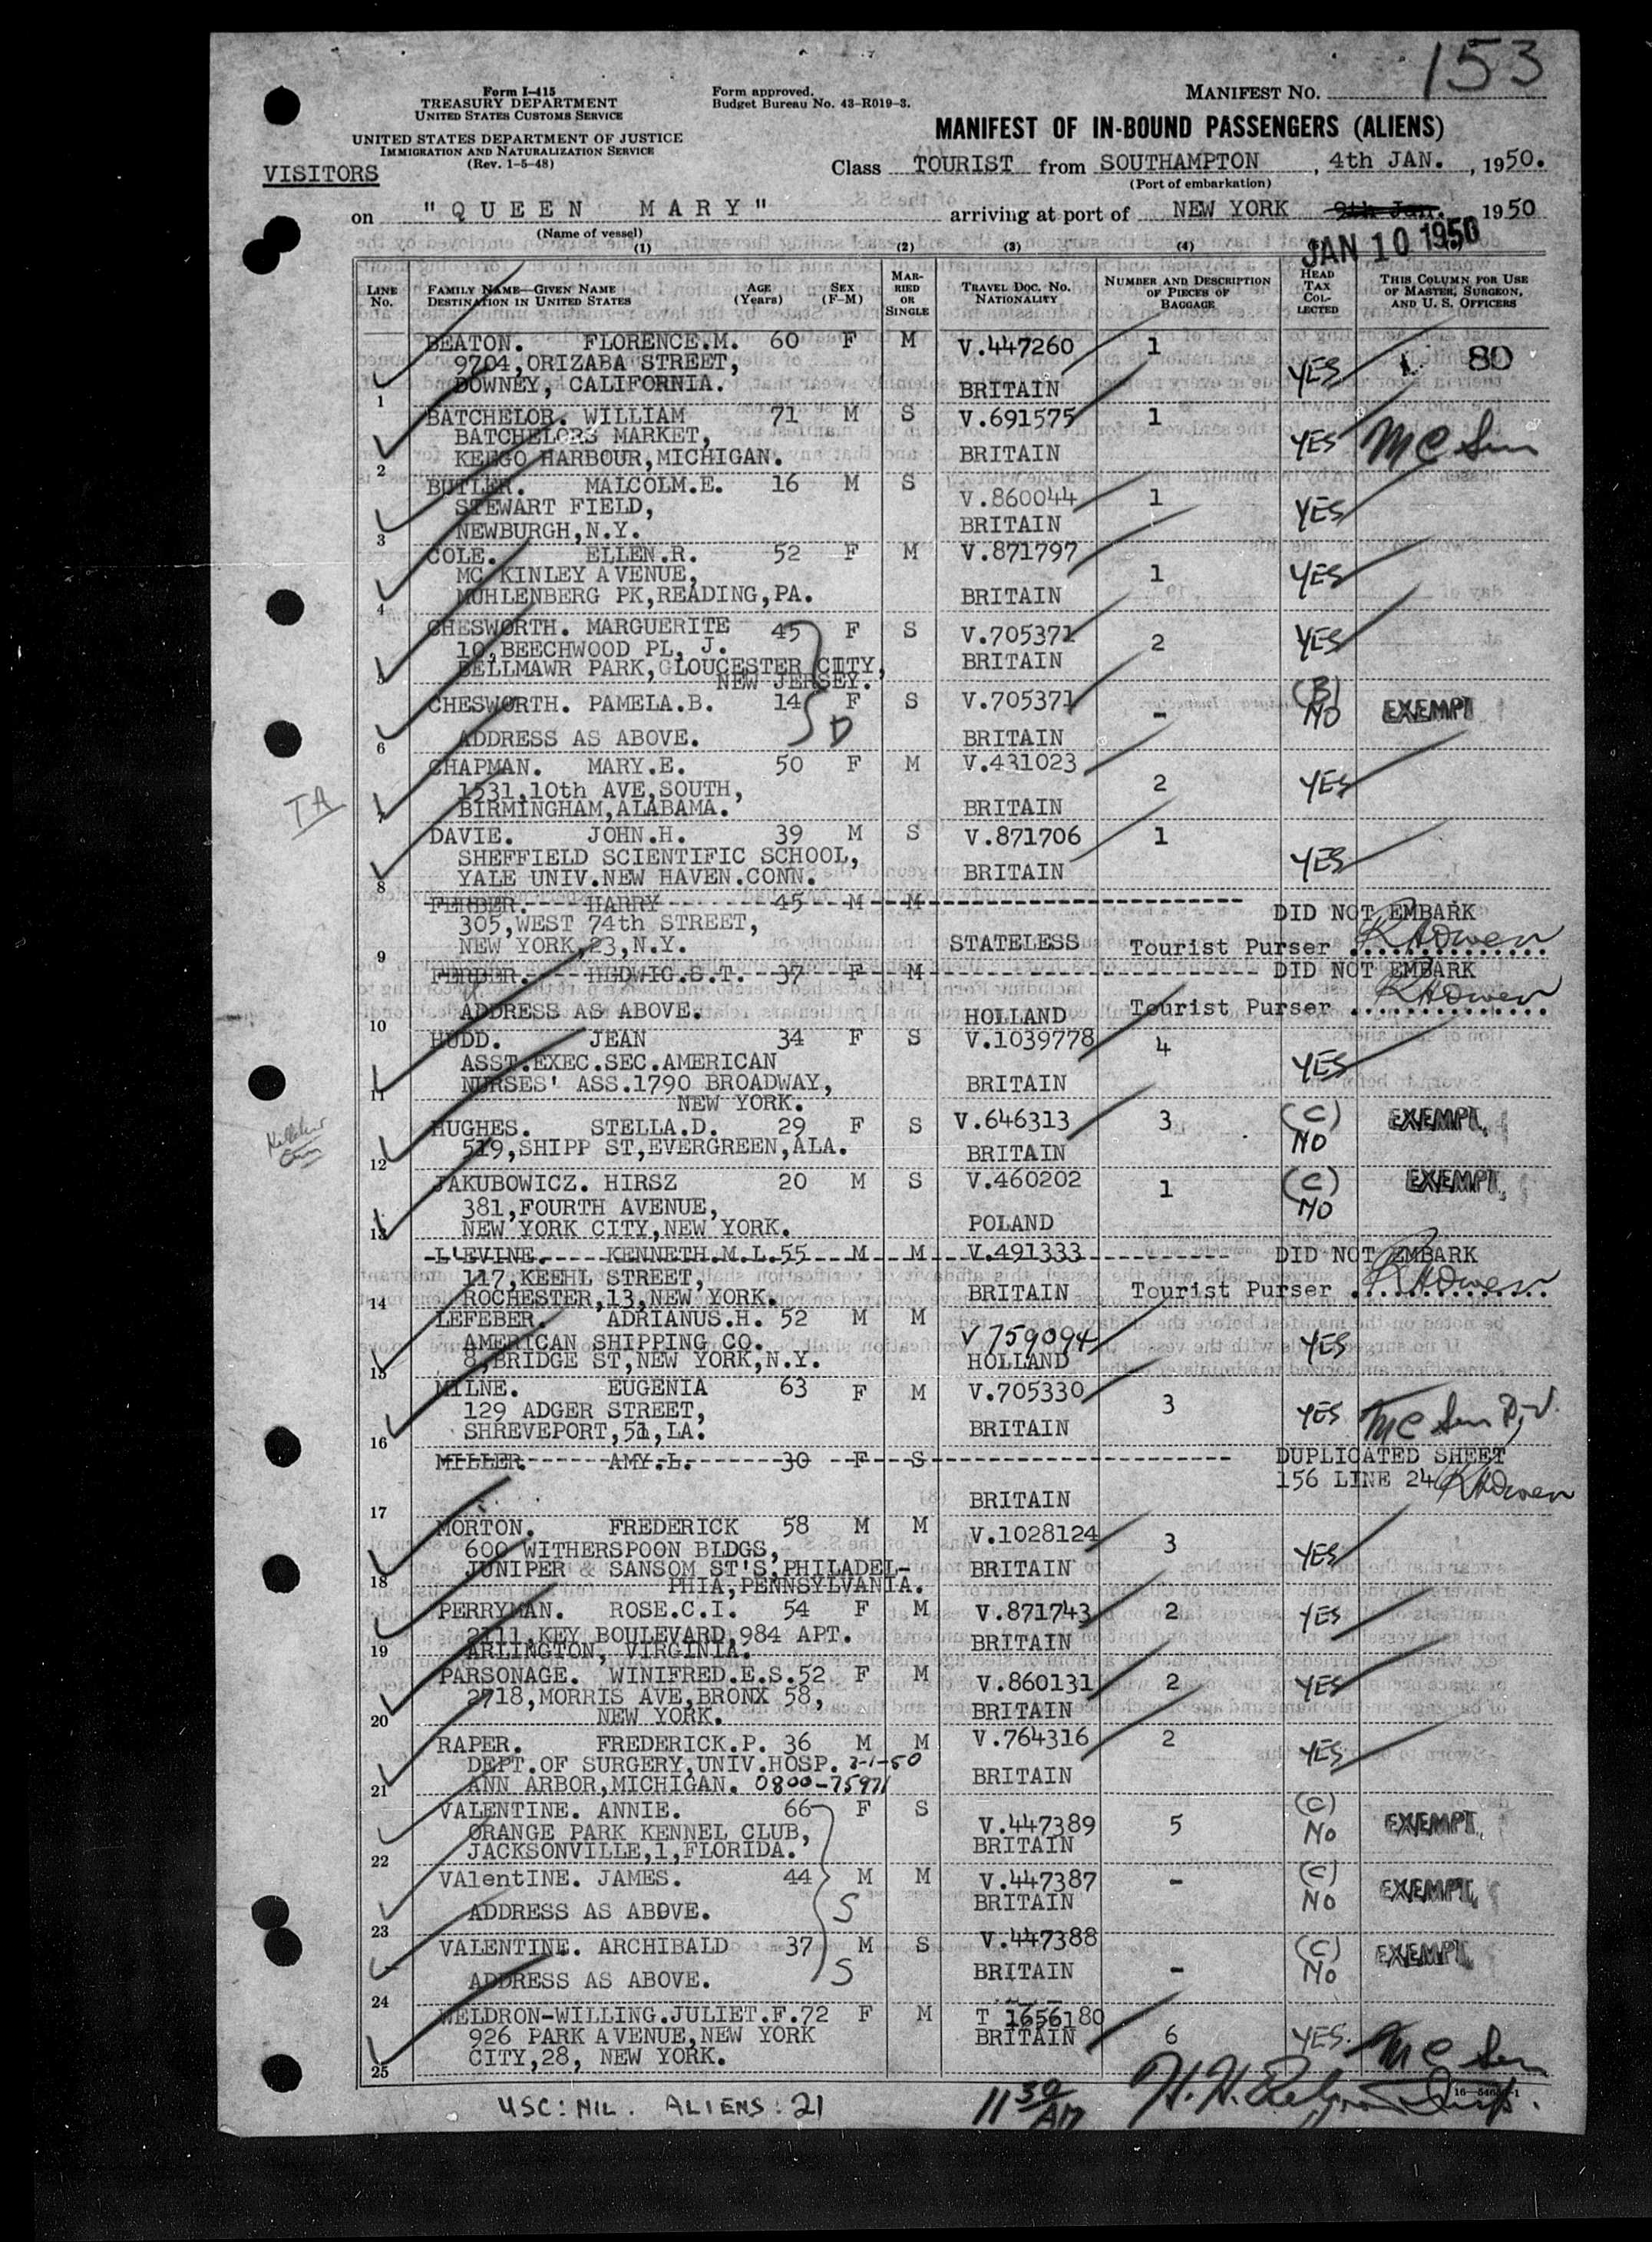 153
Form I-415
TREASURY DEPARTMENT
UNITED STATES CUSTOMS SERVICE
Form approved.
Budget Bureau No. 43-R019-3.
MANIFEST NO.
UNITED STATES DEPARTMENT OF JUSTICE
IMMIGRATION AND NATURALIZATION SERVICE
(Rev. 1-5-48)
MANIFEST OF IN-BOUND PASSENGERS (ALIENS)
VISITORS
Class TOURIST from SOUTHAMPTON, 4th JAN., 1950.
(Port of embarkation)
on "QUEEN MARY" arriving at port of NEW YORK 9th Jan. 1950
(Name of vessel)
JAN 10 1950
(1) (2) (3) (4)
LINE No. FAMILY NAME—GIVEN NAME DESTINATION IN UNITED STATES AGE (Years) SEX (F-M) MARRIED OR SINGLE TRAVEL DOC. NO. NATIONALITY NUMBER AND DESCRIPTION OF PIECES OF BAGGAGE HEAD TAX COLLECTED THIS COLUMN FOR USE OF MASTER, SURGEON, AND U. S. OFFICERS
BEATON. FLORENCE.M. 60 F M V.447260 1
9704,ORIZABA STREET, YES 80
1 DOWNEY, CALIFORNIA. BRITAIN
BATCHELOR. WILLIAM 71 M S V.691575 1
BATCHELORS MARKET, YES MC Sen
2 KEEGO HARBOUR,MICHIGAN. BRITAIN
BUTLER. MALCOLM.E. 16 M S V.860044 1
STEWART FIELD, YES
3 NEWBURGH,N.Y. BRITAIN
COLE. ELLEN.R. 52 F M V.871797
MC KINLEY AVENUE, 1 YES
4 MUHLENBERG PK,READING,PA. BRITAIN
CHESWORTH. MARGUERITE 45 F S V.705371 2 YES
10,BEECHWOOD PL, J.
5 BELLMAWR PARK,GLOUCESTER CITY, BRITAIN
NEW JERSEY.
CHESWORTH. PAMELA.B. 14 F S V.705371 - (B) NO EXEMPT
D
6 ADDRESS AS ABOVE. BRITAIN
CHAPMAN. MARY.E. 50 F M V.431023
TA
1531,10th AVE,SOUTH, 2 YES
7 BIRMINGHAM,ALABAMA. BRITAIN
DAVIE. JOHN.H. 39 M S V.871706 1
SHEFFIELD SCIENTIFIC SCHOOL, YES
8 YALE UNIV.NEW HAVEN.CONN. BRITAIN
FERBER. HARRY 45 M M DID NOT EMBARK
305,WEST 74th STREET,
9 NEW YORK,23,N.Y. STATELESS Tourist Purser KHOwen
FERBER. HEDWIG.S.T. 37 F M DID NOT EMBARK
10 ADDRESS AS ABOVE. HOLLAND Tourist Purser KHOwen
HUDD. JEAN 34 F S V.1039778 4
ASST.EXEC.SEC.AMERICAN YES
11 NURSES' ASS.1790 BROADWAY, BRITAIN
NEW YORK.
HUGHES. STELLA.D. 29 F S V.646313 3 (C) NO EXEMPT
12 519,SHIPP ST,EVERGREEN,ALA. BRITAIN
JAKUBOWICZ. HIRSZ 20 M S V.460202 1 (C) NO EXEMPT
381,FOURTH AVENUE,
13 NEW YORK CITY,NEW YORK. POLAND
L'EVINE. KENNETH.M.L.55 M M V.491333 DID NOT EMBARK
117,KEEHL STREET,
14 ROCHESTER,13,NEW YORK. BRITAIN Tourist Purser KHOwen
LEFEBER. ADRIANUS.H. 52 M M
AMERICAN SHIPPING CO. V 759094 YES
15 8,BRIDGE ST,NEW YORK,N.Y. HOLLAND
MILNE. EUGENIA 63 F M V.705330
129 ADGER STREET, 3 YES MC Sen
16 SHREVEPORT,51,LA. BRITAIN
MILLER. AMY.L. 30 F S DUPLICATED SHEET
156 LINE 24 KHOwen
17 BRITAIN
MORTON. FREDERICK 58 M M V.1028124 3
600 WITHERSPOON BLDGS, YES
18 JUNIPER & SANSOM ST'S,PHILADEL- BRITAIN
PHIA,PENNSYLVANIA.
PERRYMAN. ROSE.C.I. 54 F M V.871743 2 YES
2111,KEY BOULEVARD,984 APT.
19 ARLINGTON, VIRGINIA. BRITAIN
PARSONAGE. WINIFRED.E.S.52 F M V.860131 2 YES
2718,MORRIS AVE,BRONX 58,
20 NEW YORK. BRITAIN
RAPER. FREDERICK.P. 36 M M V.764316 2
DEPT.OF SURGERY,UNIV.HOSP. 2-1-50 YES
21 ANN ARBOR,MICHIGAN. 0800-75971 BRITAIN
VALENTINE. ANNIE. 66 F S V.447389 5 (C) No EXEMPT
ORANGE PARK KENNEL CLUB,
22 JACKSONVILLE,1,FLORIDA. BRITAIN
VAlentINE. JAMES. 44 M M V.447387 - (C) No EXEMPT
S
23 ADDRESS AS ABOVE. BRITAIN
VALENTINE. ARCHIBALD 37 M S V.447388 (C) No EXEMPT
S
24 ADDRESS AS ABOVE. BRITAIN -
WELDRON-WILLING.JULIET.F.72 F M T 1656180
926 PARK AVENUE,NEW YORK BRITAIN 6 YES. MC Sen
25 CITY,28, NEW YORK.
USC: NIL. ALIENS: 21 11 30 AM H.H. Insp.